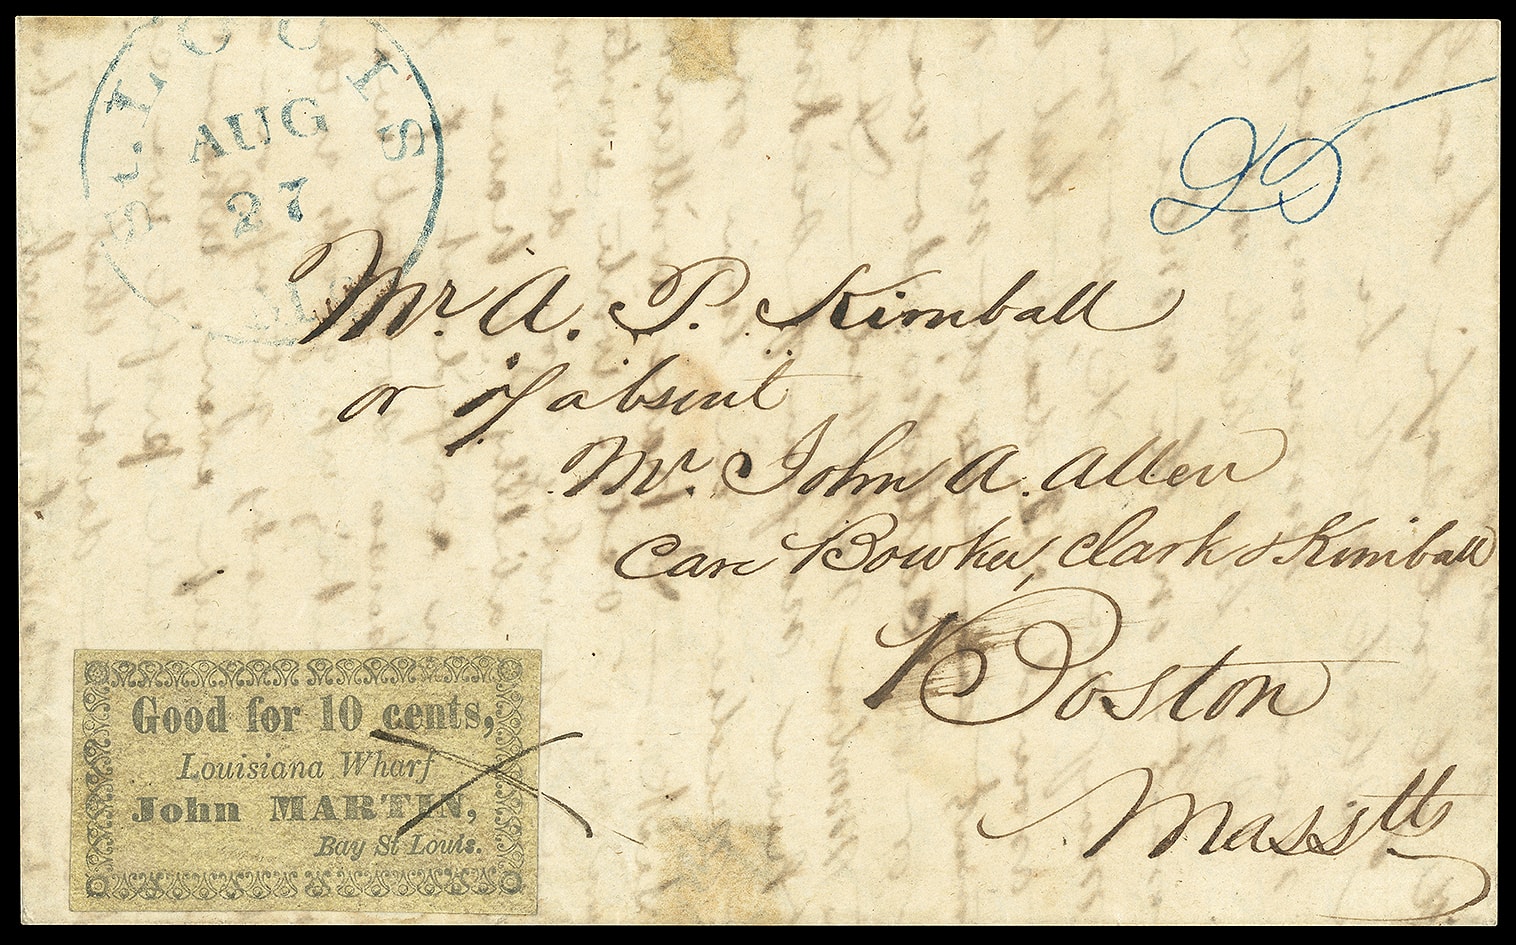 ST. LOUIS
AUG
27
25
Mr. A. P. Kimball
or if absent
Mr. John A. Allen
Care Bowker, Clark & Kimball
Boston
Masstts
Good for 10 cents,
Louisiana Wharf
John MARTIN,
Bay St Louis.